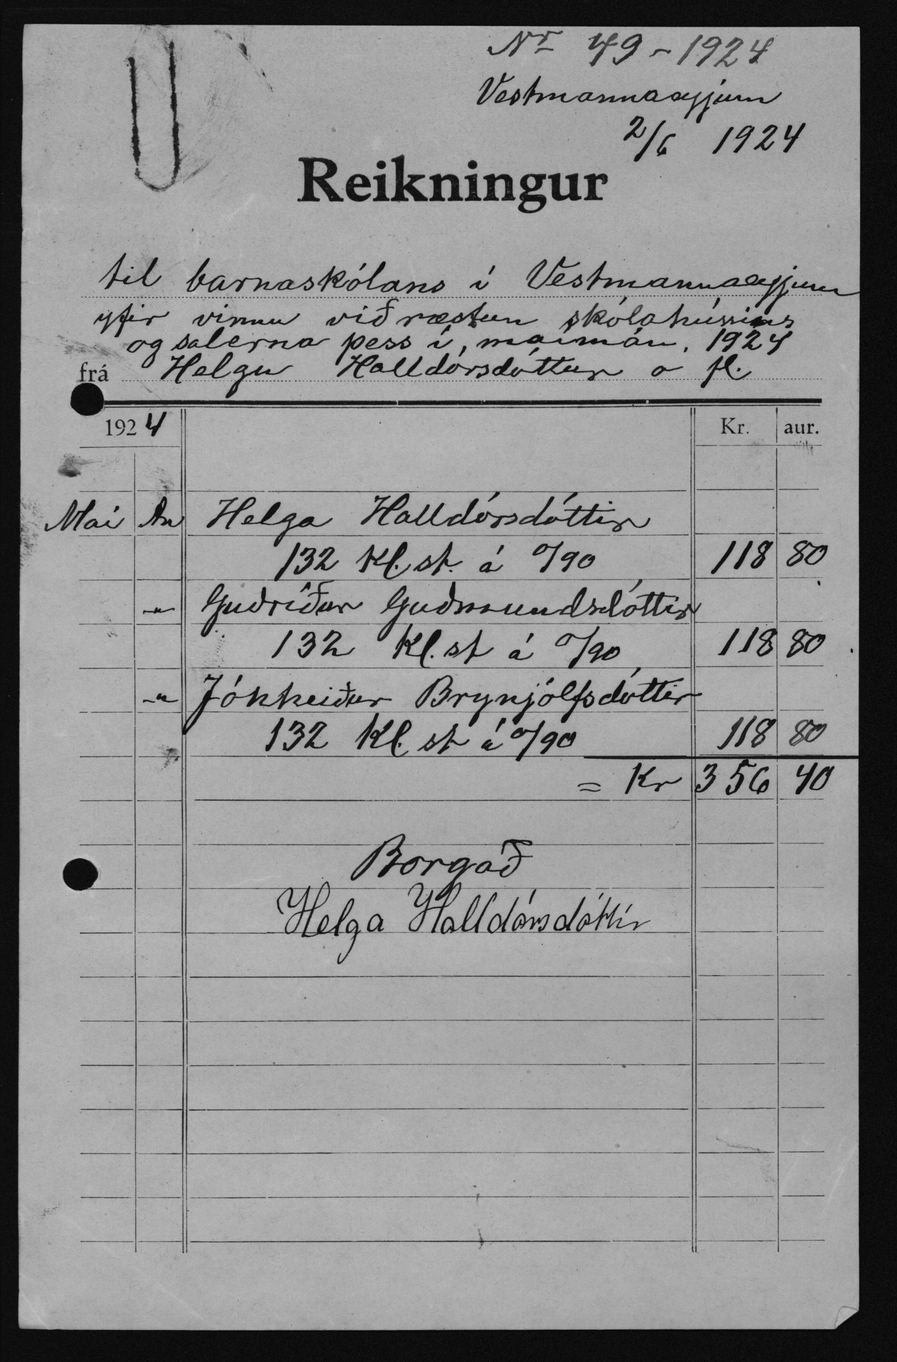 Nr 49 - 1924
Vestmannaeyjum
2/6 1924
Reikningur
til barnaskólans í Vestmannaeyjum
yfir vinnu við ræstun skólahússins
og salerna þess í, maímán. 1924
frá Helgu Halldórsdóttur o fl.
1924 Kr. aur.
Maí Helga Halldórsdóttir
132 Kl. st. á 0/90 118 80
-"- Guðríður Guðmundsdóttir
132 Kl. st á 0/90 118 80
-"- Jókheiður Brynjólfsdóttir
132 Kl. st á 0/90 118 80
= Kr 356 40
Borgað
Helga Halldórsdóttir